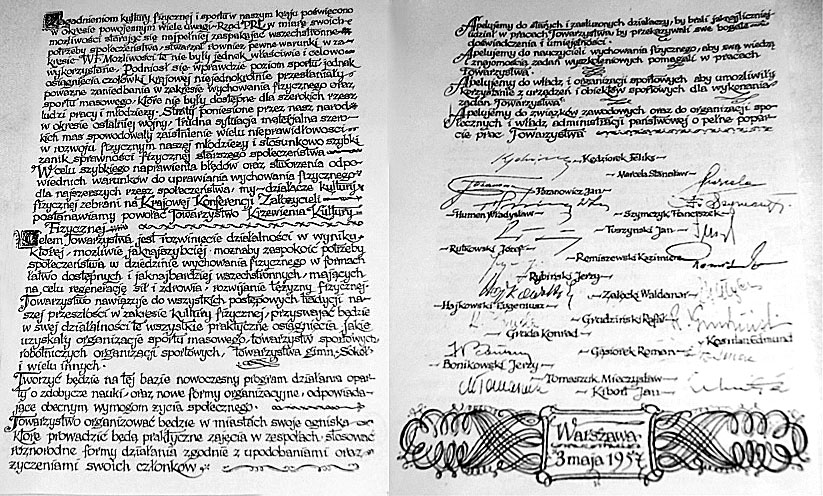 Zagadnieniom kultury fizycznej i sportu w naszym kraju poświęcono
w okresie powojennym wiele uwagi. Rząd PRL w miarę swoich
możliwości starając się najpełniej zaspakajać wszechstronne
potrzeby społeczeństwa, stwarzał również pewne warunki w za-
kresie WF. Możliwości te nie były jednak właściwie i celowo
wykorzystane. Podniósł się wprawdzie poziom sportu, jednak
osiągnięcia czołówki krajowej niejednokrotnie przesłaniały
poważne zaniedbania w zakresie wychowania fizycznego oraz
sportu masowego, które nie były dostępne dla szerokich rzesz
ludzi pracy i młodzieży. Straty poniesione przez nasz naród
w okresie ostatniej wojny, trudna sytuacja materialna szero-
kich mas spowodowały zaistnienie wielu nieprawidłowości
w rozwoju fizycznym naszej młodzieży i stosunkowo szybki
zanik sprawności fizycznej starszego społeczeństwa
W celu szybkiego naprawienia błędów oraz stworzenia odpo-
wiednich warunków do uprawiania wychowania fizycznego
dla najszerszych rzesz społeczeństwa, my działacze kultury
fizycznej zebrani na Krajowej Konferencji Założycieli
postanawiamy powołać Towarzystwo Krzewienia Kultury
Fizycznej
Celem Towarzystwa jest rozwinięcie działalności w wyniku
której, możliwie jaknajszybciej można by zaspokoić potrzeby
społeczeństwa w dziedzinie wychowania fizycznego w formach
łatwo dostępnych i jaknajbardziej wszechstronnych, mających
na celu regenerację sił i zdrowia, rozwijanie tężyzny fizycznej.
Towarzystwo nawiązuje do wszystkich postępowych tradycji na-
szej przeszłości w zakresie kultury fizycznej, przyswajać będzie
w swej działalności te wszystkie praktyczne osiągnięcia jakie
uzyskały organizacje sportu masowego, towarzystw sportowych,
robotniczych organizacji sportowych, towarzystwa gimn. Sokół
i wielu innych.
Tworzyć będzie na tej bazie nowoczesny program działania opar-
ty o zdobycze nauki, oraz nowe formy organizacyjne, odpowiada-
jące obecnym wymogom życia społecznego.
Towarzystwo organizować będzie w miastach swoje ogniska
które prowadzić będą praktyczne zajęcia w zespołach, stosować
różnorodne formy działania zgodnie z upodobaniami oraz
życzeniami swoich członków.
Apelujemy do starych i zasłużonych działaczy, by brali jaknajliczniej
udział w pracach Towarzystwa, by przekazywali swe bogate
doświadczenia i umiejętności.
Apelujemy do nauczycieli wychowania fizycznego, aby swą wiedzą
i znajomością zadań wyszkoleniowych pomagali w pracach
Towarzystwa.
Apelujemy do władz i organizacji sportowych aby umożliwiły
korzystanie z urządzeń i obiektów sportowych dla wykonania
zadań Towarzystwa
Apelujemy do związków zawodowych oraz do organizacji spo-
łecznych i władz administracji państwowej o pełne popar-
cie prac Towarzystwa
Kędziorek Feliks
Marcela Stanisław
Poznowicz Jan
Human Władysław
Szymczyk Franciszek
Toszyński Jan
Rutkowski Józef
Remiszewski Kazimierz
Rybiński Jerzy
Hojkowski Eugeniusz
Załęcki Waldemar
Gradziński Rafał
Gruda Konrad
Kosman Edmund
Gąsiorek Roman
Bonikowski Jerzy
Tomaszuk Mieczysław
Kibort Jan
Warszawa
3 maja 1957